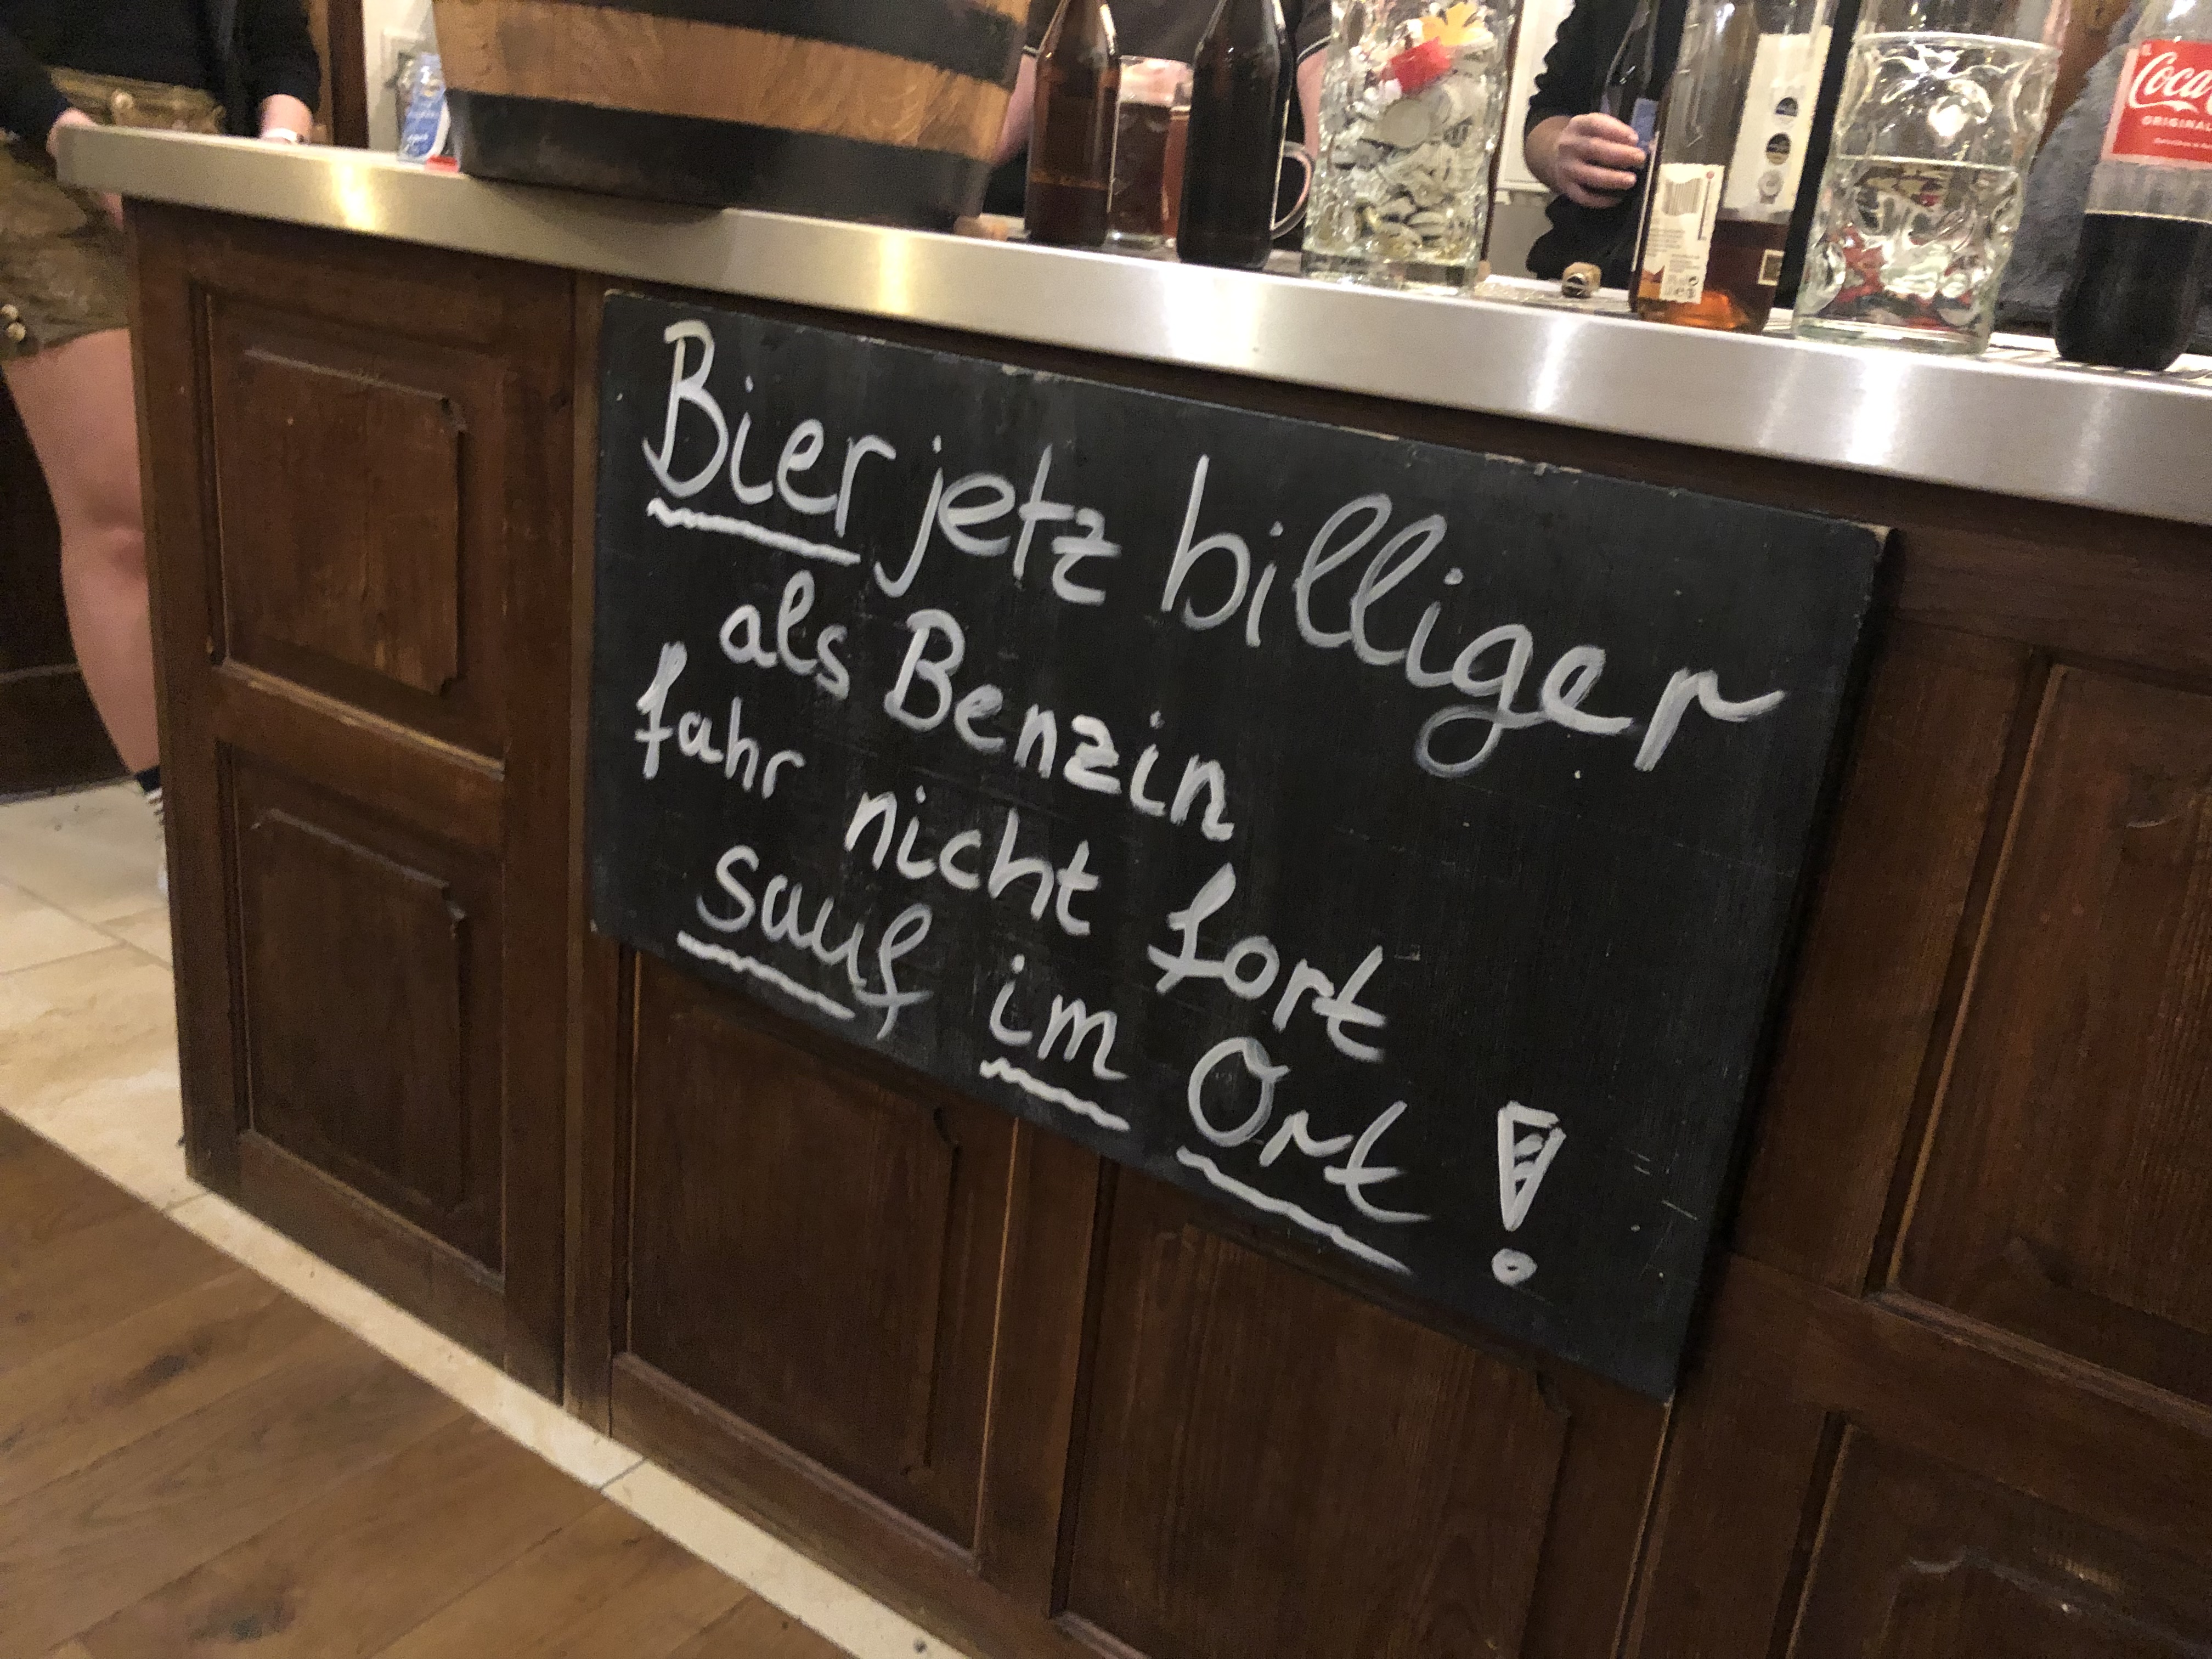 Bier jetz billiger
als Benzin
fahr nicht fort
sauf im Ort!
Coca
ORIGINAL